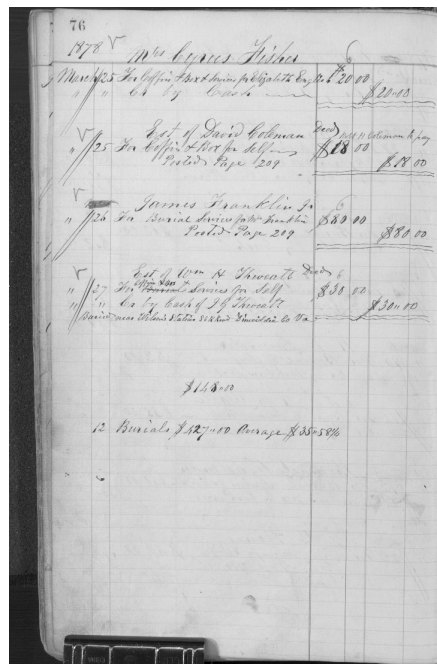 76
1878 Mrs Cyrus Fisher
March 25 For Coffin & Box & Services for Elizabeth $20.00
" " Cr by Cash $20=00
Est of David Coleman Decd Coleman to pay
" 25 For Coffin & Box for Self $18 00
Posted Page 209 $18.00
James Franklin Jr
" 26 For Burial Services for Franklin $80 00
Posted Page 209 $80.00
Est of Wm H Thweatt Decd
" 27 For Coffin & Box Services for Self $30 00
" " Cr by Cash of J G Thweatt $30=00
Buried near Station Dinwiddie Co Va
$148=00
12 Burials $427=00 Average $35=58 1/4